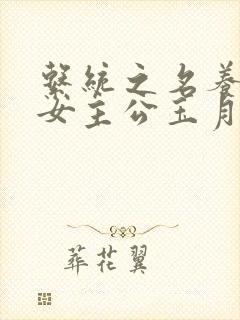 繫統之名養
女主公玉月
葬花翼